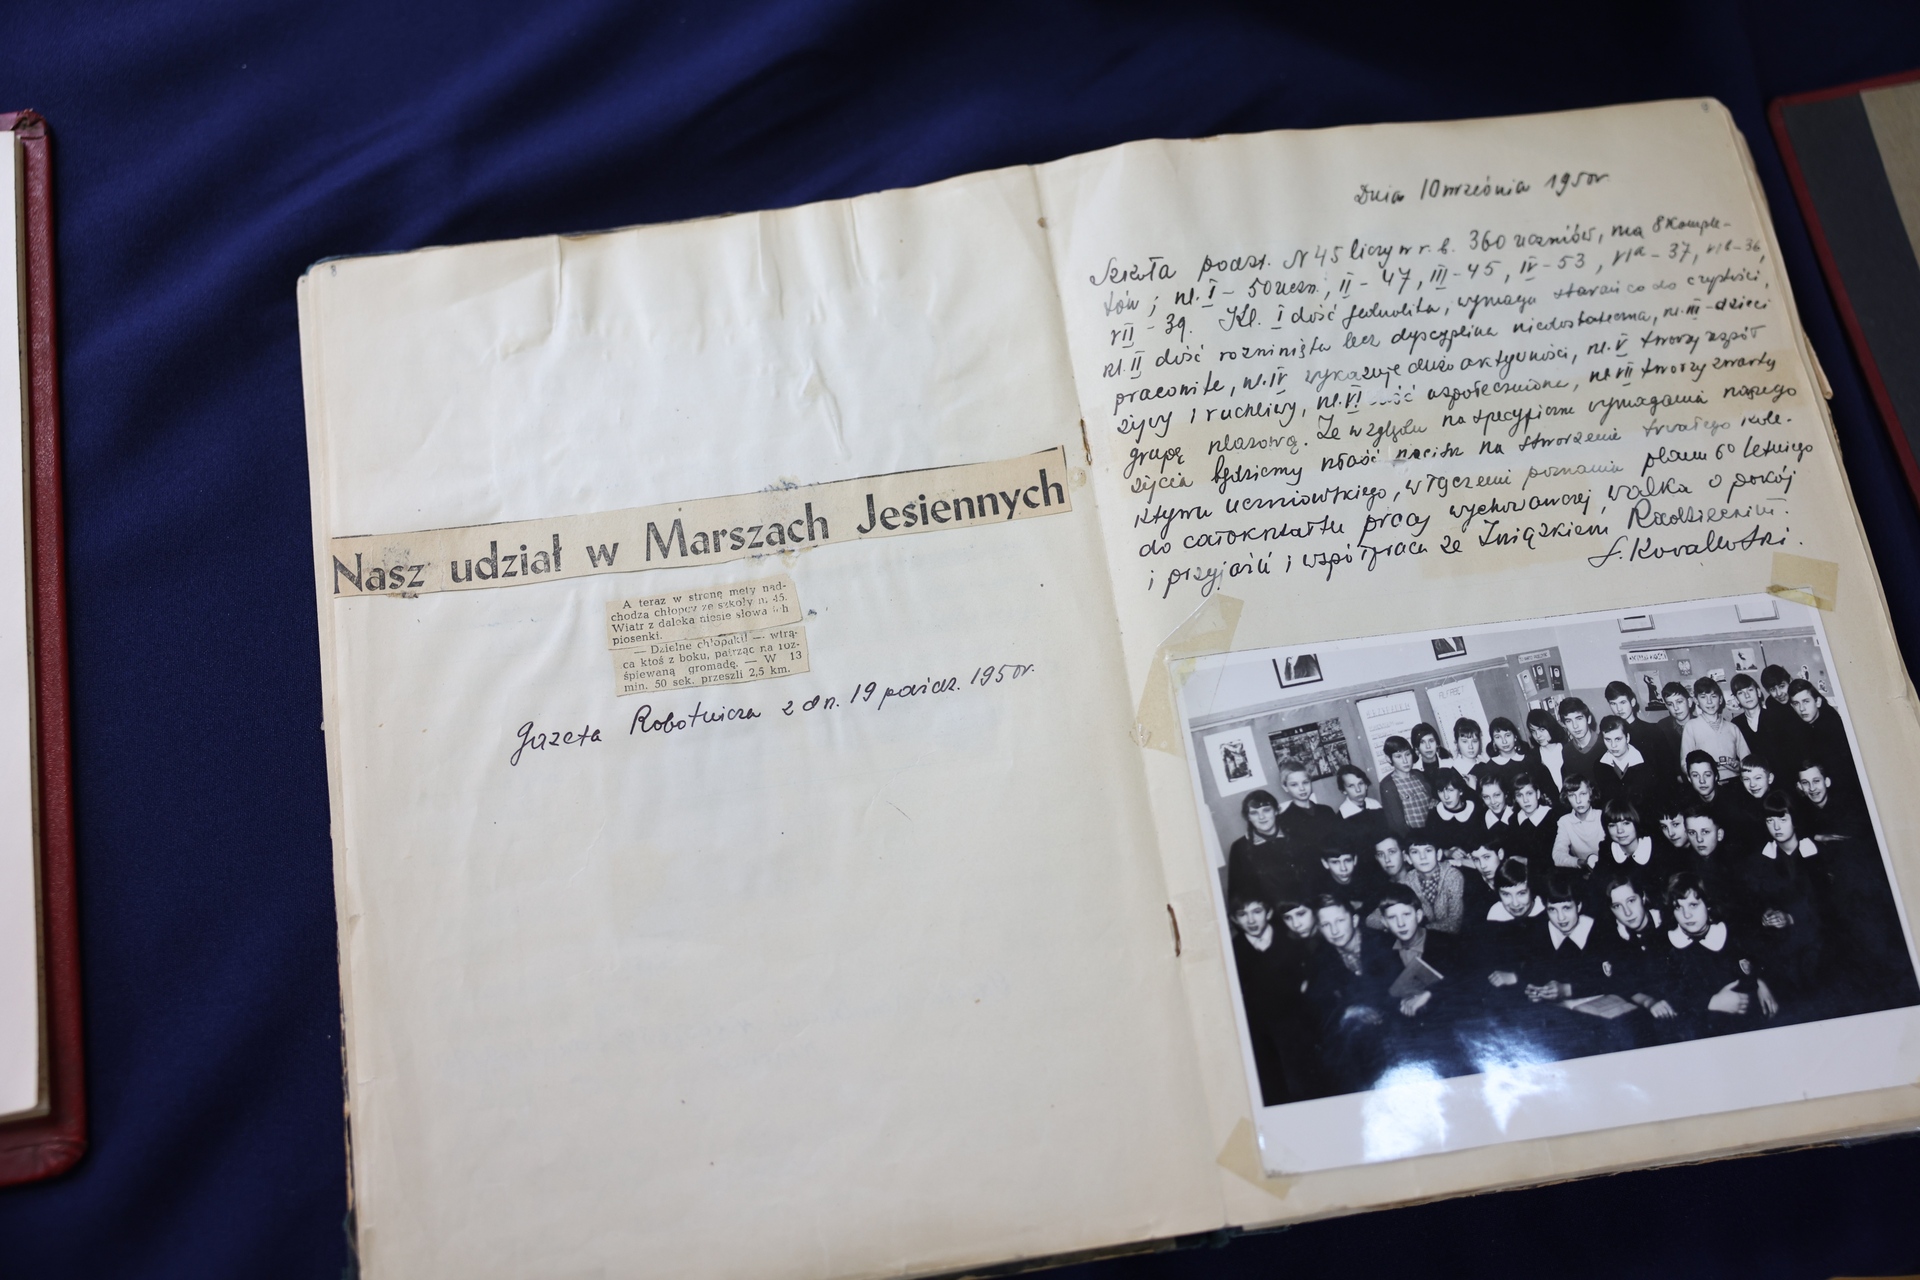 8
Nasz udział w Marszach Jesiennych
A teraz w stronę mety nad-
chodzą chłopcy ze szkoły n. 45.
Wiatr z daleka niesie słowa ich
piosenki.
— Dzielne chłopaki! — wtrą-
ca ktoś z boku, patrząc na roz-
śpiewaną gromadę. — W 13
min. 50 sek. przeszli 2,5 km.
Gazeta Robotnicza z dn. 19 paźdz. 1950r.
9
Dnia 10 września 1950r.
Szkoła podst. N 45 liczy w r. b. 360 uczniów, ma 8 komple-
tów; kl. I – 50 uczn., II – 47, III – 45, IV – 53, VIa – 37, VIb – 36,
VII – 39. Kl. I dość jednolita, wymaga starań co do czystości,
kl. II dość rozwinięta lecz dyscyplina niedostateczna, kl. III – dzieci
pracowite, kl. IV wykazuje dużo aktywności, kl. V tworzy zespół
żywy i ruchliwy, kl. VI dość uspołeczniona, kl. VII tworzy zwartą
grupę klasową. Ze względu na specyficzne wymagania naszego
życia będziemy kłaść nacisk na stworzenie trwałego kole-
ktywu uczniowskiego, włączeniu poznania planu 6º letniego
do całokształtu pracy wychowawczej, walka o pokój
i przyjaźń i współpraca ze Związkiem Radzieckim.
S. Kowalewski.
ALFABET